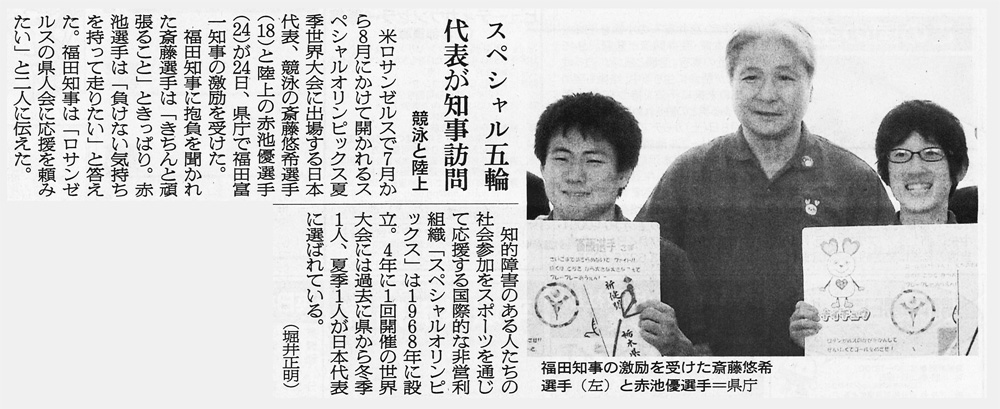 スペシャル五輪
代表が知事訪問
競泳と陸上
米ロサンゼルスで7月か
ら8月にかけて開かれるス
ペシャルオリンピックス夏
季世界大会に出場する日本
代表、競泳の斎藤悠希選手
(18)と陸上の赤池優選手
(24)が24日、県庁で福田富
一知事の激励を受けた。
福田知事に抱負を聞かれ
た斎藤選手は「きちんと頑
張ること」ときっぱり。赤
池選手は「負けない気持ち
を持って走りたい」と答え
た。福田知事は「ロサンゼ
ルスの県人会に応援を頼み
たい」と二人に伝えた。
知的障害のある人たちの
社会参加をスポーツを通じ
て応援する国際的な非営利
組織「スペシャルオリンピ
ックス」は1968年に設
立。4年に1回開催の世界
大会には過去に県から冬季
1人、夏季1人が日本代表
に選ばれている。
(堀井正明)
栃木県
福田知事の激励を受けた斎藤悠希
選手(左)と赤池優選手=県庁